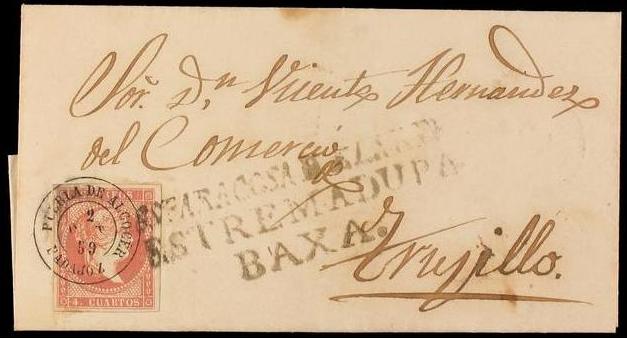 Sor. D.n Vicente Hernandez
del Comercio
de
Trujillo.
ESPARAGOSA D LARES
ESTREMADURA
BAXA.
PUEBLA DE ALCOCER
2
59
BADAJOZ
4 CUARTOS